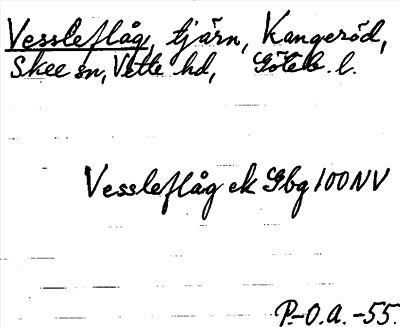 Vessleflåg, tjärn, Kangeröd,
Skee sn, Vette hd, Göteb. l.
Vessleflåg ek Gbg 100 NV
P.-O.A. -55.